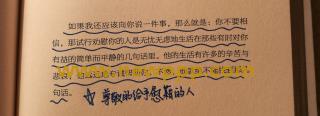 如果我还应该向你说一件事，那么就是：你不要相
信，那试行劝慰你的人是无忧无虑地生活在那些有时对你有
益的简单而平静的几句话里。他的生活有许多的辛苦与
悲哀，他远远地专诚帮助你。不然，他就绝不能找到那几
句话。
尊敬的给予慰藉的人